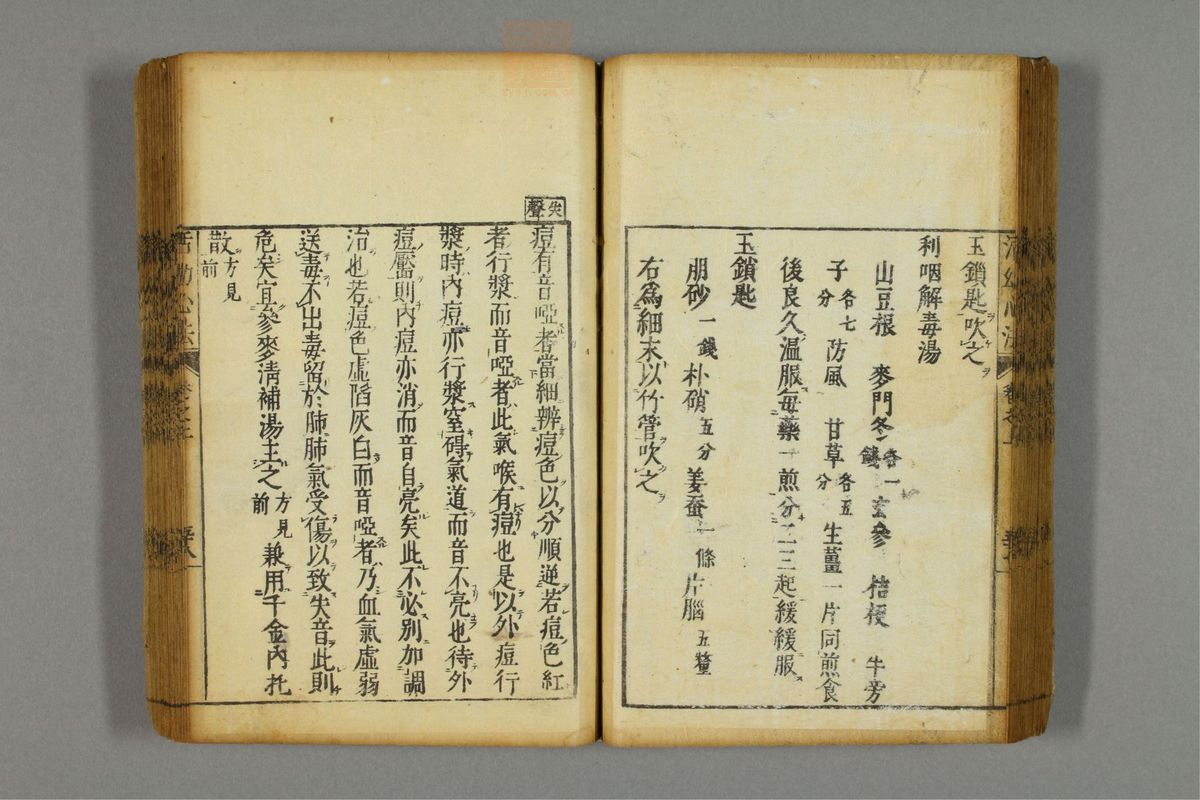 玉鎖匙吹之
利咽解毒湯
山豆根 麥門冬各一錢 玄參 桔梗 牛旁
子各七分 防風 甘草各五分 生薑一片同煎食
後良久温服毎藥一煎分二三起緩緩服
玉鎖匙
朋砂一錢 朴硝五分 姜蚕一條 片腦五釐
右爲細末以竹管吹之
失聲
痘有音啞者當細辨痘色以分順逆若痘色紅
者行漿而音啞者此氣喉有痘也是以外痘行
漿時内痘亦行漿窒碍氣道而音不亮也待外
痘靨則内痘亦消而音自亮矣此不必別加調
治也若痘色虚陷灰白而音啞者乃血氣虚弱
送毒不出毒留於肺肺氣受傷以致失音此則
危矣宜參麥清補湯主之方見前 兼用千金内托
散方見前
活幼心法